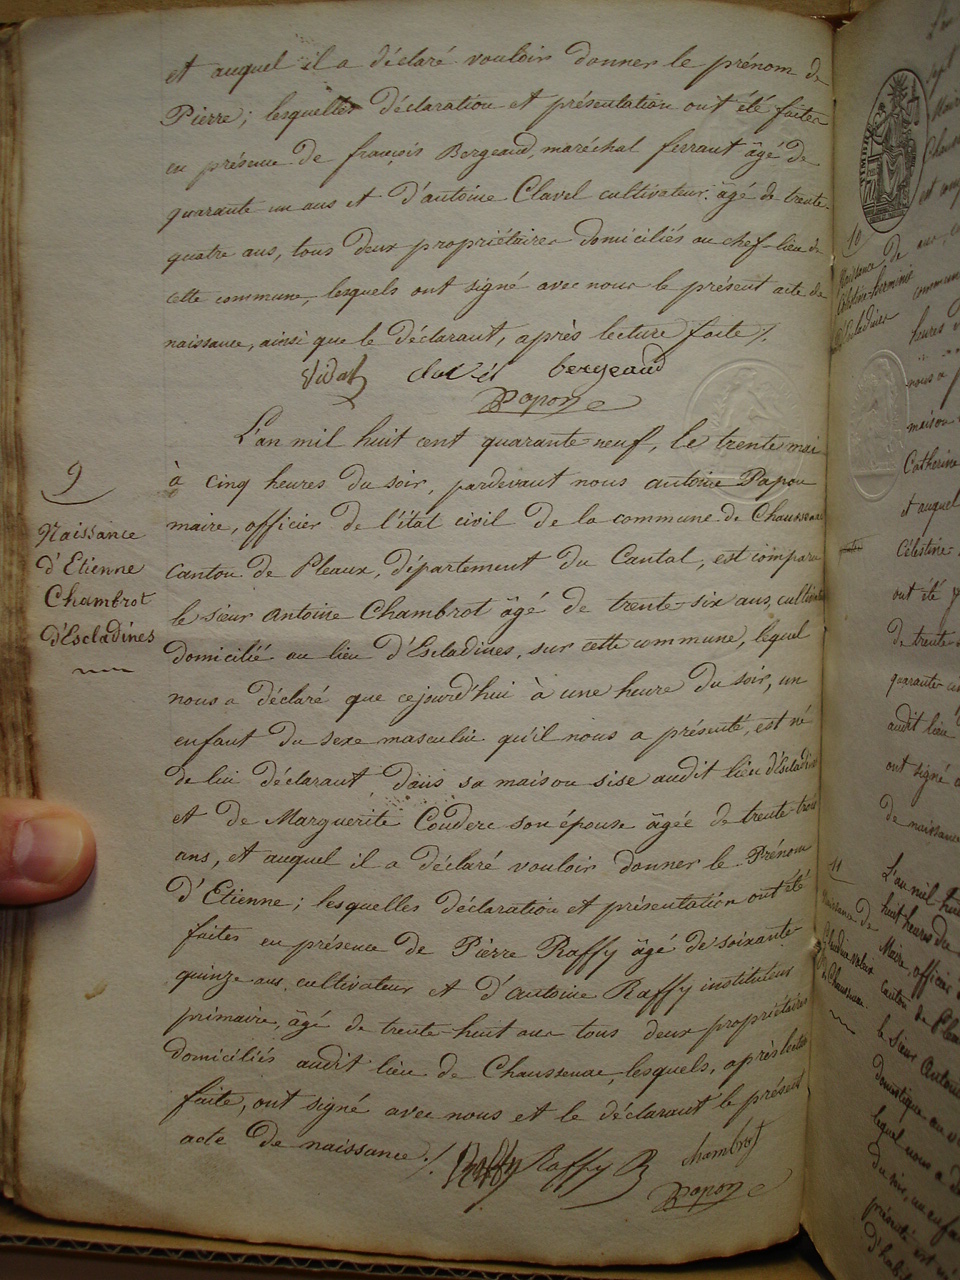 et auquel il a déclaré vouloir donner le prénom de
Pierre ; lesquelles déclaration et présentation ont été faites
en présence de françois Bergeaud, maréchal ferrant âgé de
quarante un ans et d'antoine Clavel cultivateur âgé de trente-
quatre ans, tous deux propriétaires domiciliés au chef-lieu de
cette commune, lesquels ont signé avec nous le présent acte de
naissance, ainsi que le déclarant, après lecture faite ./.
Vidal clavel bergeaud
Papon
9
Naissance
d'Etienne
Chambrot
d'Escladines
L'an mil huit cent quarante-neuf, le trente mai
à cinq heures du soir, pardevant nous antoine Papon
maire, officier de l'état civil de la commune de Chaussenac
canton de Pleaux, département du Cantal, est comparu
le sieur antoine Chambrot âgé de trente-six ans, cultivateur
domicilié au lieu d'Escladines, sur cette commune, lequel
nous a déclaré que cejourd'hui à une heure du soir, un
enfant du sexe masculin qu'il nous a présenté, est né
de lui déclarant, dans sa maison sise audit lieu d'Escladines
et de Marguerite Couderc son épouse âgée de trente-trois
ans, et auquel il a déclaré vouloir donner le Prénom
d'Etienne ; lesquelles déclaration et présentation ont été
faites en présence de Pierre Raffy âgé de soixante-
quinze ans, cultivateur et d'antoine Raffy instituteur
primaire, âgé de trente-huit ans tous deux propriétaires
domiciliés audit lieu de Chaussenac, lesquels, après lecture
faite, ont signé avec nous et le déclarant le présent
acte de naissance ./.
Raffy Raffy chambrot
Papon
TIMBRE
10
Naissance de
d'Escladines
heures
nous a
maison
Catherine
et auquel
Célestine
ont été
de trente
quarante
audit lieu
ont signé
de naissance
11
Naissance de
de Chaussenac
L'an mil huit
huit heures du
Maire, officier
canton de Pleaux
le sieur Antoine
domestique au
lequel nous a
du soir, un enfant
présenté est né